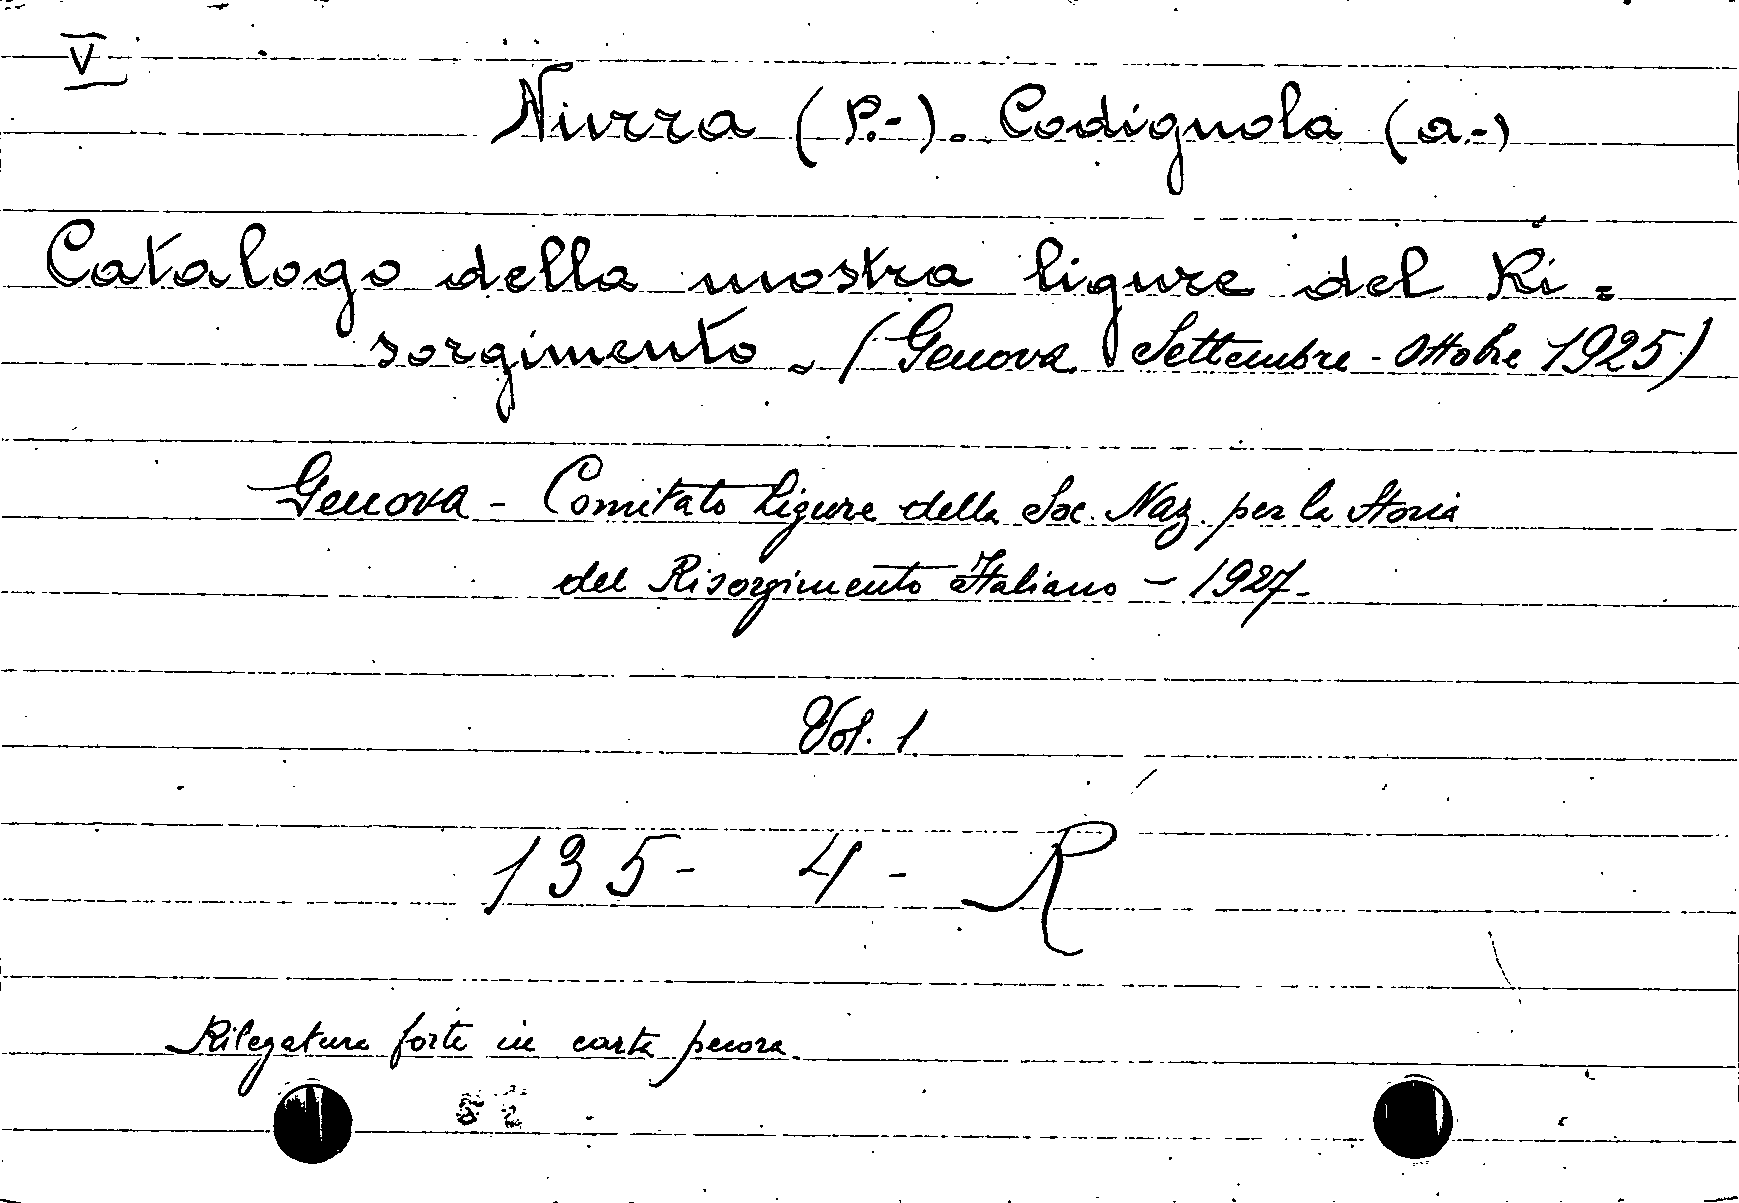 V
Niurra (P.-). Codignola (a.-)
Catalogo della mostra ligure del Ri=
sorgimento. (Genova Settembre - Ottobre 1925)
Genova - Comitato Ligure della Soc. Naz. per la Storia
del Risorgimento Italiano - 1927.
Vol. 1
135- 4 - R
Rilegatura forte in carta pecora.